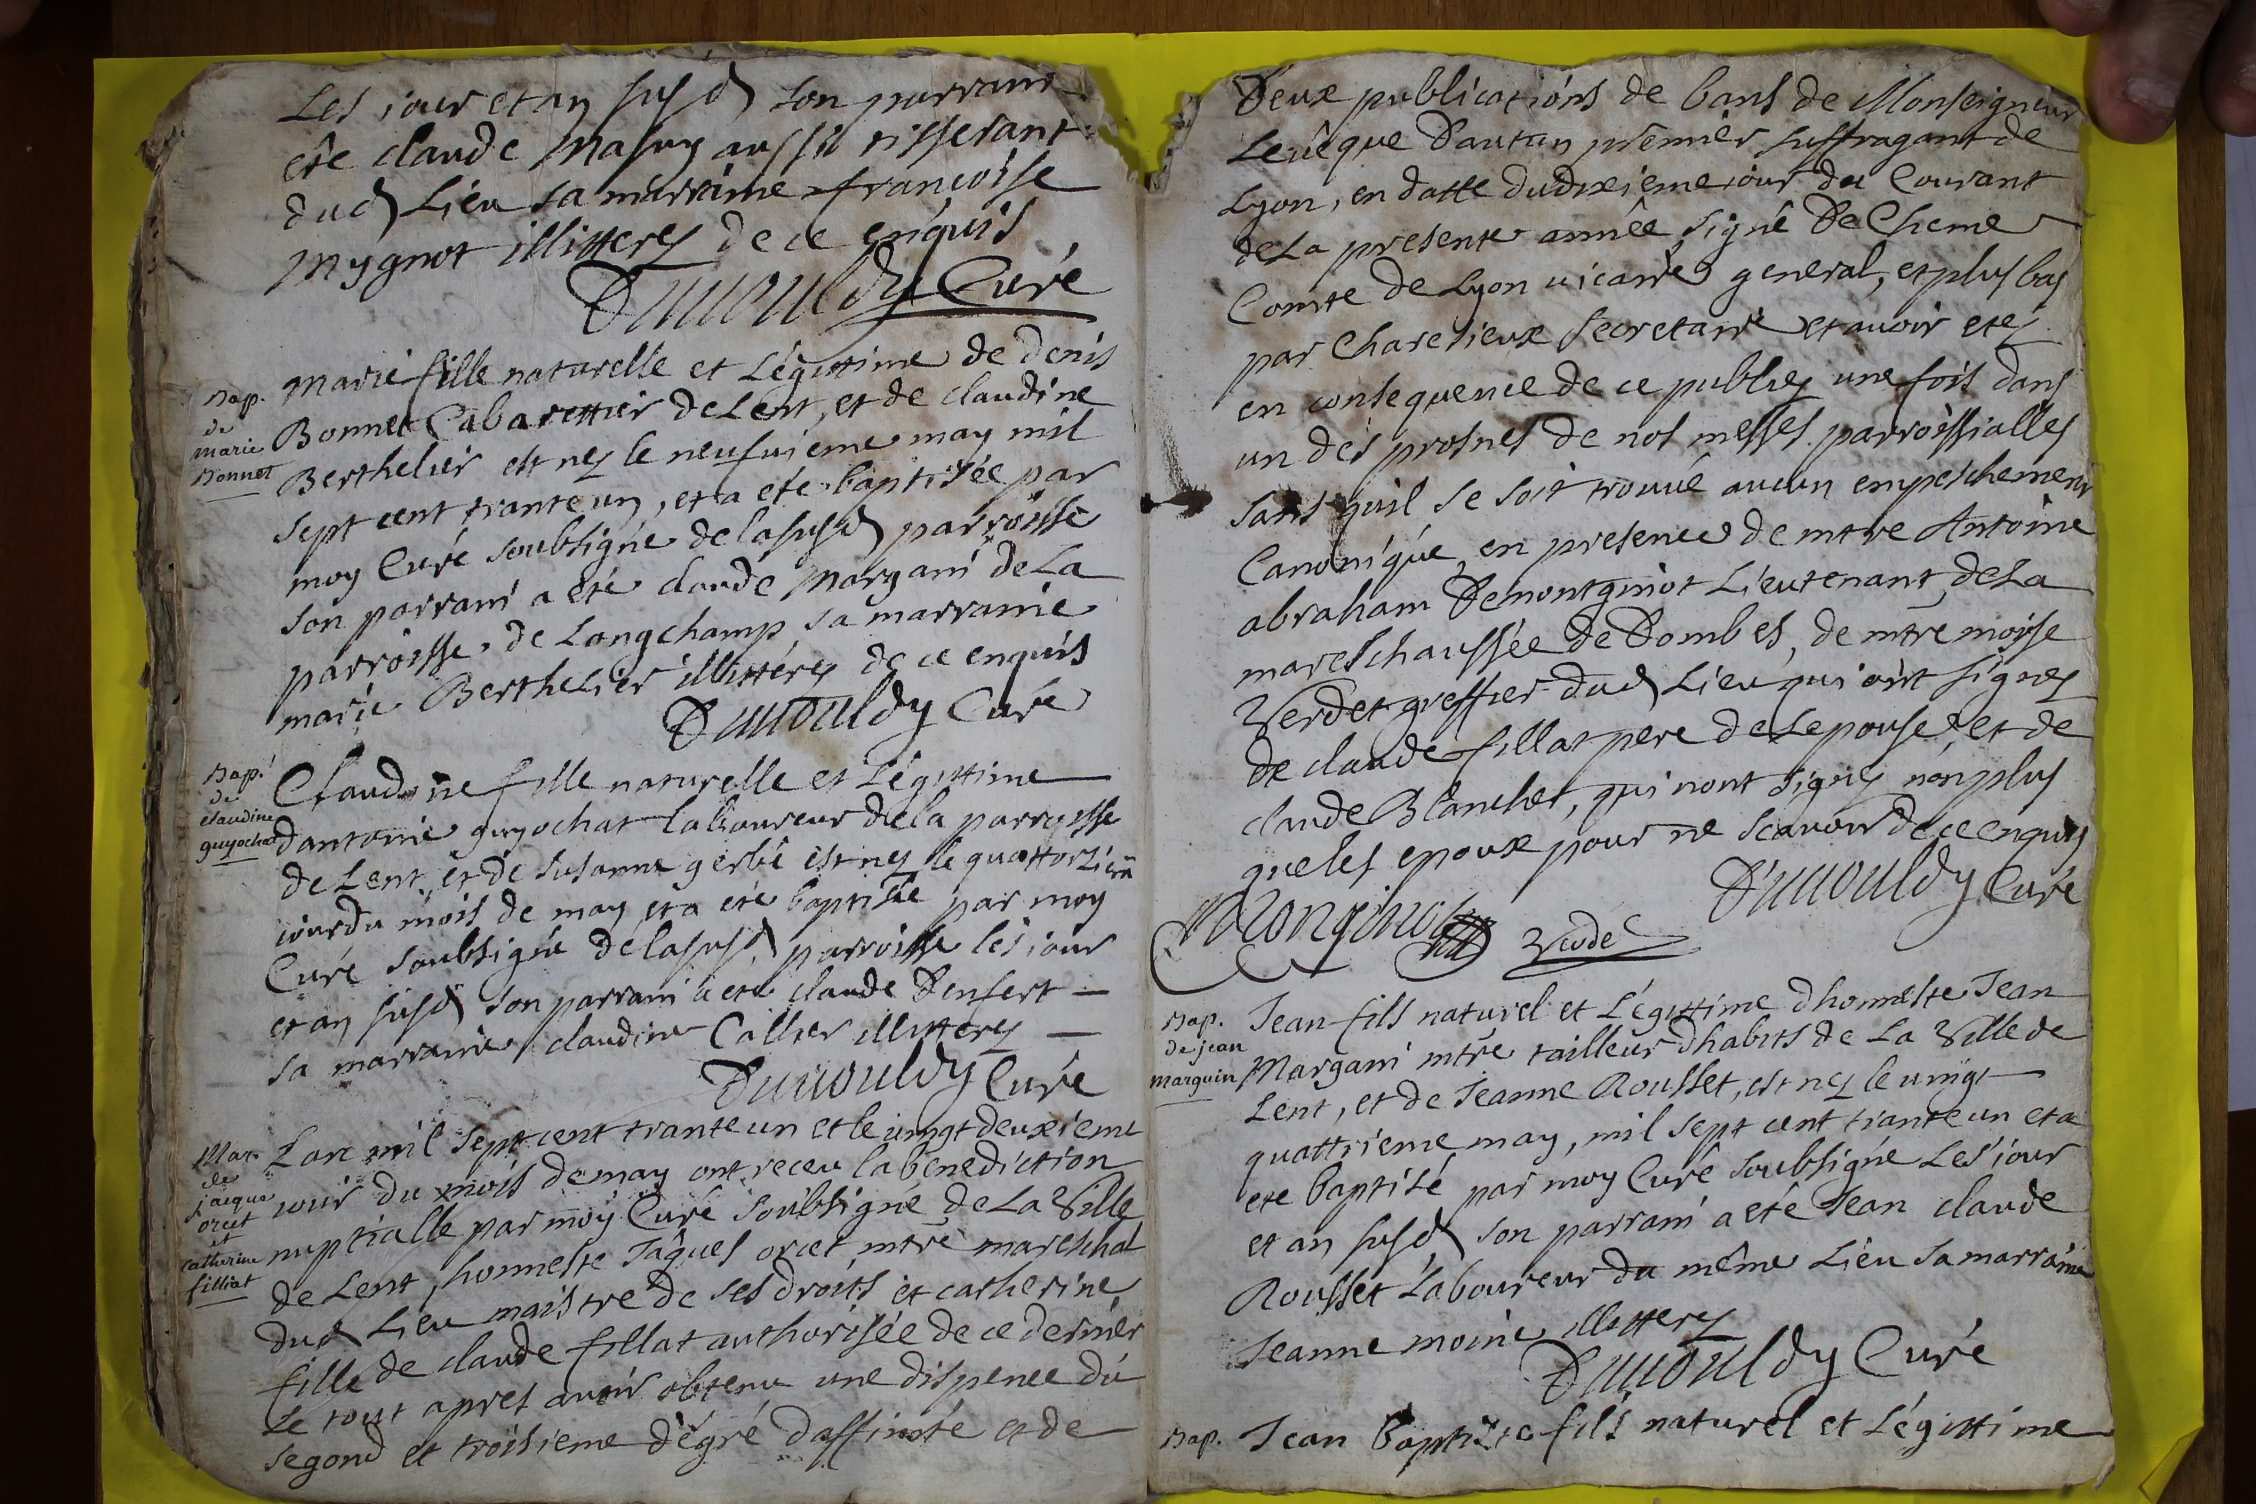 Les jour et an susd son parrain
ete claude Masuy aussi tisserant
dud Lieu sa marraine françoise
Mygnot illitterez de ce enquis
Dunouldy Curé
Bap.
de
marie
Bonnet
Marie fille naturelle et Légittime de denis
Bonnet Cabarettier de Lent, et de claudine
Berthelier est nez le neufuieme may mil
sept cent trante un, et a eté baptisée par
moy Curé soubsigné de la susd parroisse
son parrain a eté claude Margain de La
parroisse de Longchamp sa marraine
marie Berthelier illittérez de ce enquis
Dunouldy Curé
Bap.
de
claudine
guyochat
Claudine fille naturelle et Légittime
dantoine guyochat laboureur de la parroisse
de Lent et de susanne gerbe est nez le quattorziem
jour du mois de may et a eté baptisée par moy
Curé soubsigné de la susd parroisse les jour
et an susd son parrain a eté claude Denfert
sa marraine claudine Callier illitterez
Dunouldy Curé
Mar.
de
jacque
orcet
et
catherine
filliat
Lan mil sept cent trante un et le uingt deuxieme
jour du mois de may ont receu la bénédiction
nuptialle par moy Curé soubsigné de La Ville
de Lent, honneste Jâques orcet mtre mareschal
dud Lieu maistre de ses droits et catherine
fille de claude fillat authorisée de ce dernier
Le tout apres avoir obtenu une dispence du
segond et troisieme dégré daffinité et de
Deux publications de bans de Monseigneur
Leuêque Dautun premier suffragant de
Lyon, en datte du dixieme jour du Courant
de La presente année, signé De Cheme
Comte de Lyon uicaire general, et plus bas
par Charesieux secretaire et auoir etez
en consequence de ce publiez une fois dans
un des prosnes de nos messes parroissialles
sans quil se soit trouué aucun empeschement
Canonique, en presence de mtre Antoine
abraham Demontginot Lieutenant de La
mareschaussée de Dombes, de mtre moise
Verdet greffier dud Lieu qui ont signez
de claude fillat pere de Lepouse et de
claude Blanchet, qui nont signez non plus
que les epoux pour ne scauoir de ce enquis
Dunouldy Curé
Montginot Verdet
Bap.
de jean
marguin
Jean fils naturel et Légittime dhonneste Jean
Margain mtre tailleur dhabits de La Ville de
Lent, et de Jeanne Rousset, est nez le uingt
quattrieme may, mil sept cent trante un et a
ete baptisé par moy Curé soubsigné Les jour
et an susd son parrain a eté Jean claude
Rousset Laboureur du même Lieu sa marraine
Jeanne moine illitterez
Dunouldy Curé
Bap.
Jean baptiste fils naturel et Légittime